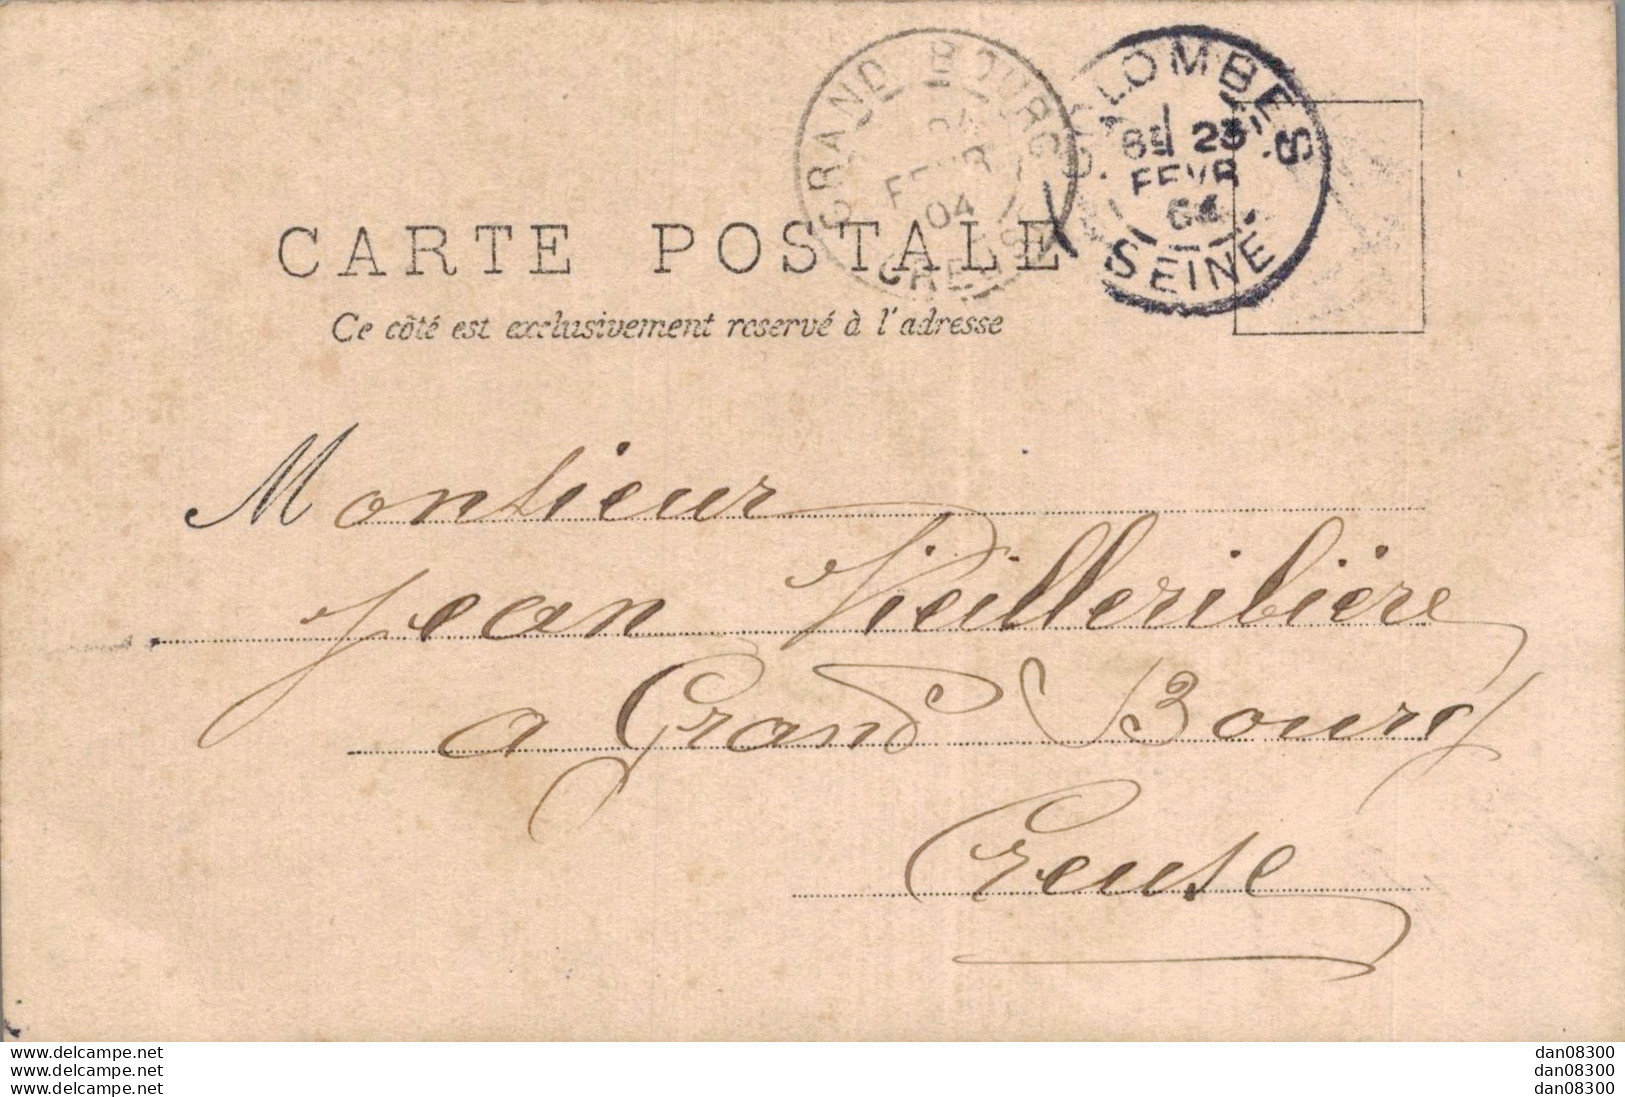 GRAND BOURG
FEVR
04
CREUSE
COLOMBES
8E 23
FEVR
04
SEINE
CARTE POSTALE
Ce côté est exclusivement reservé à l'adresse
Monsieur
Jean Vieilleribière
a Grand Bourg
Creuse
www.delcampe.net
www.delcampe.net
www.delcampe.net
dan08300
dan08300
dan08300